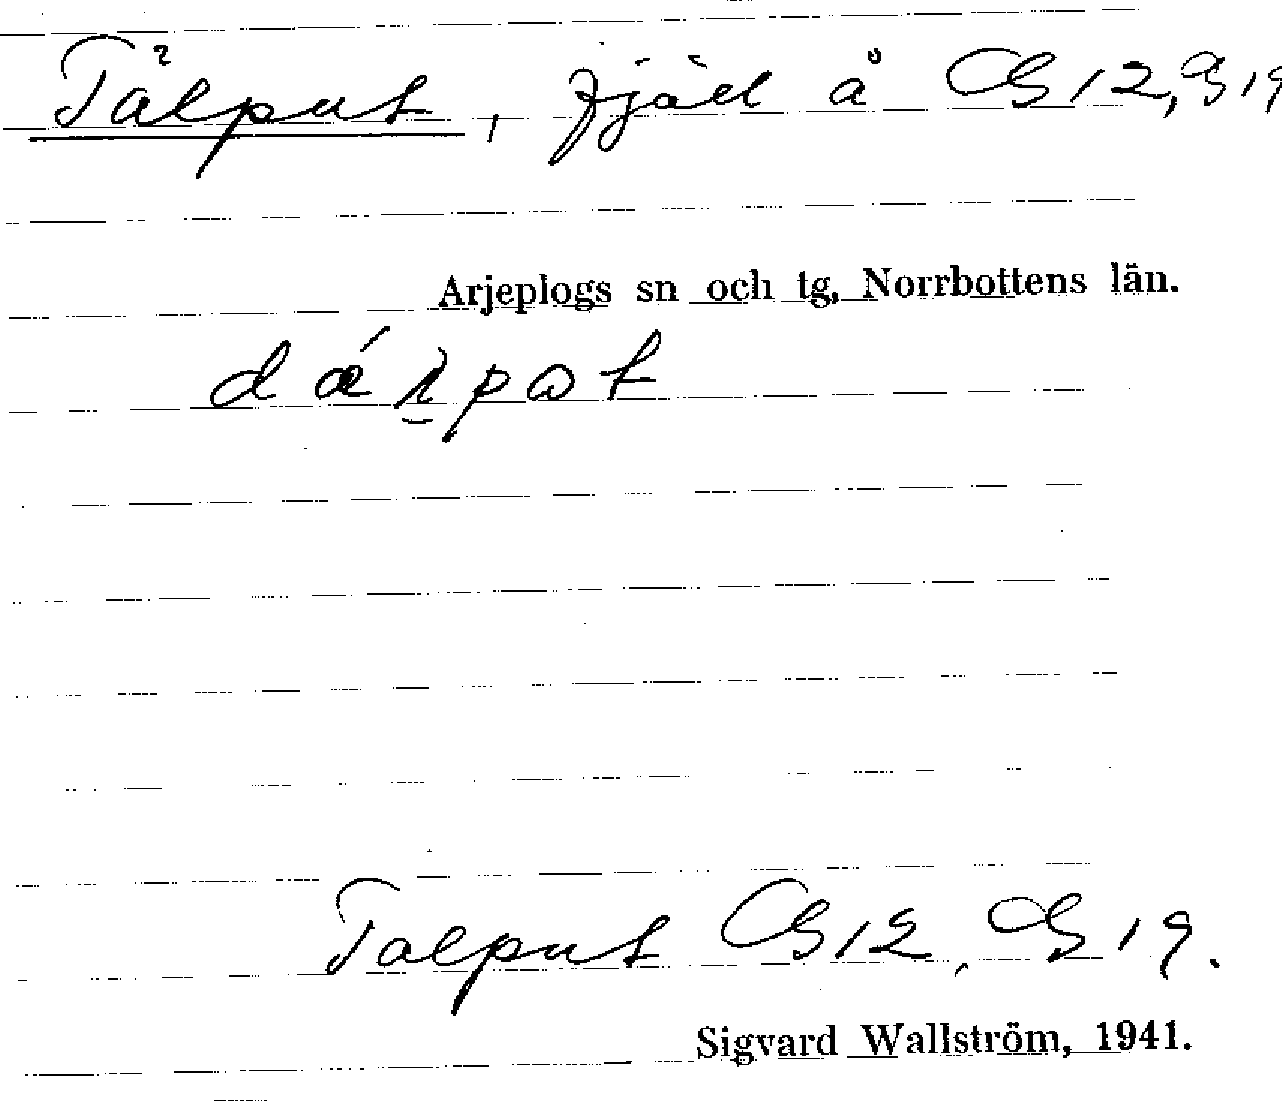 Tålput, fjäll å G12, G19
Arjeplogs sn och tg, Norrbottens län.
Talput G12, G19.
Sigvard Wallström, 1941.